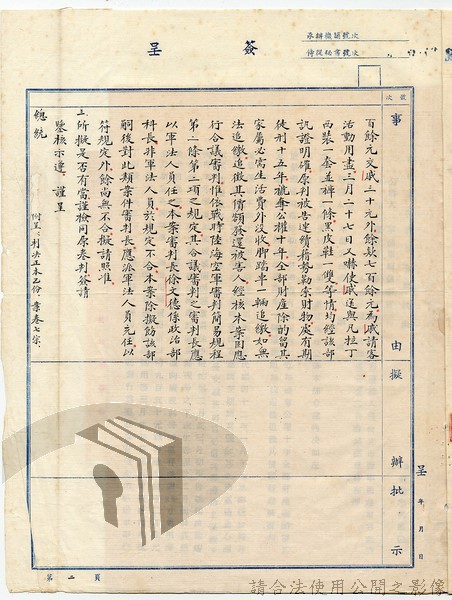 簽呈
承辦機關號次
侍從秘書號次
號次
事由
擬辦
批示
呈 年 月 日
百餘元交戚三十元外餘款七百餘元為戚請客
活動用盡三月二十七日又嚇使戚送與凡拉丁
西裝一套羊褲一條黑皮鞋一雙等情均經該部
訊證明確原判被告連續藉勢勒索財物處有期
徒刑十五年褫奪公權十年全部財產除酌留其
家屬必需生活費外沒收腳踏車一輛追繳如無
法追繳追徵其價額發還被害人經核本案固應
行合議審判惟依戰時陸海空軍審判簡易規程
第二條第二項之規定其合議審判之審判長應
以軍法人員任之本案審判長徐文德係政治部
科長非軍法人員於規定不合本案除擬飭該部
嗣後對此類案件審判長應派軍法人員充任以
符規定外餘尚無不合擬請照准
上所擬是否有當謹檢同原卷判簽請
鑒核示遵 謹呈
總統
附呈:判決正本乙份、業卷七宗
第二頁
請合法使用公開之影像